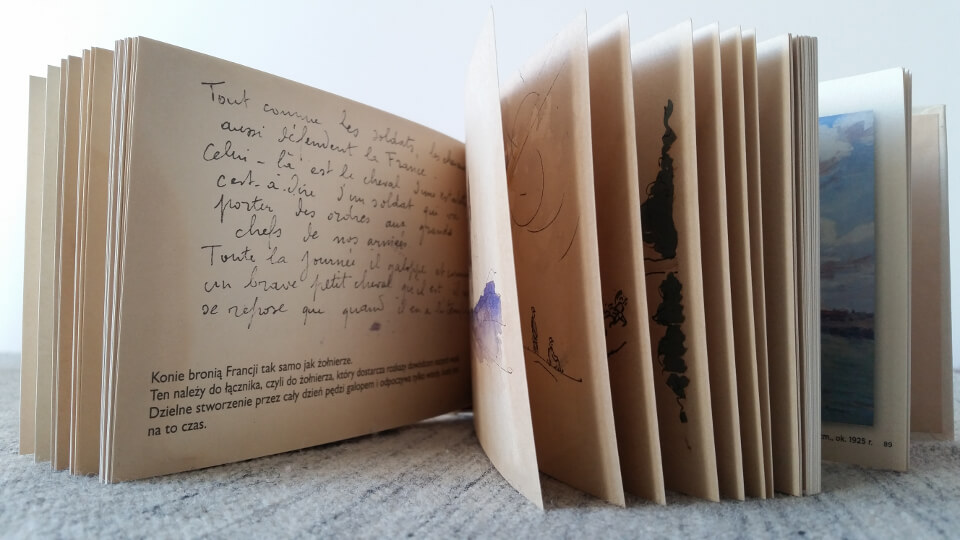 Tout comme les soldats, les
aussi défendent la France
Celui-là est le cheval d'une
c'est-à-dire d'un soldat qui va
porter des ordres aux grands
chefs de nos armées
Toute la journée il galoppe et comme
un brave petit cheval qu'il est
se repose que quand il en a le
Konie bronią Francji tak samo jak żołnierze.
Ten należy do łącznika, czyli do żołnierza, który dostarcza rozkazy
Dzielne stworzenie przez cały dzień pędzi galopem i odpoczywa tylko wtedy,
na to czas.
ok. 1925 r. 89